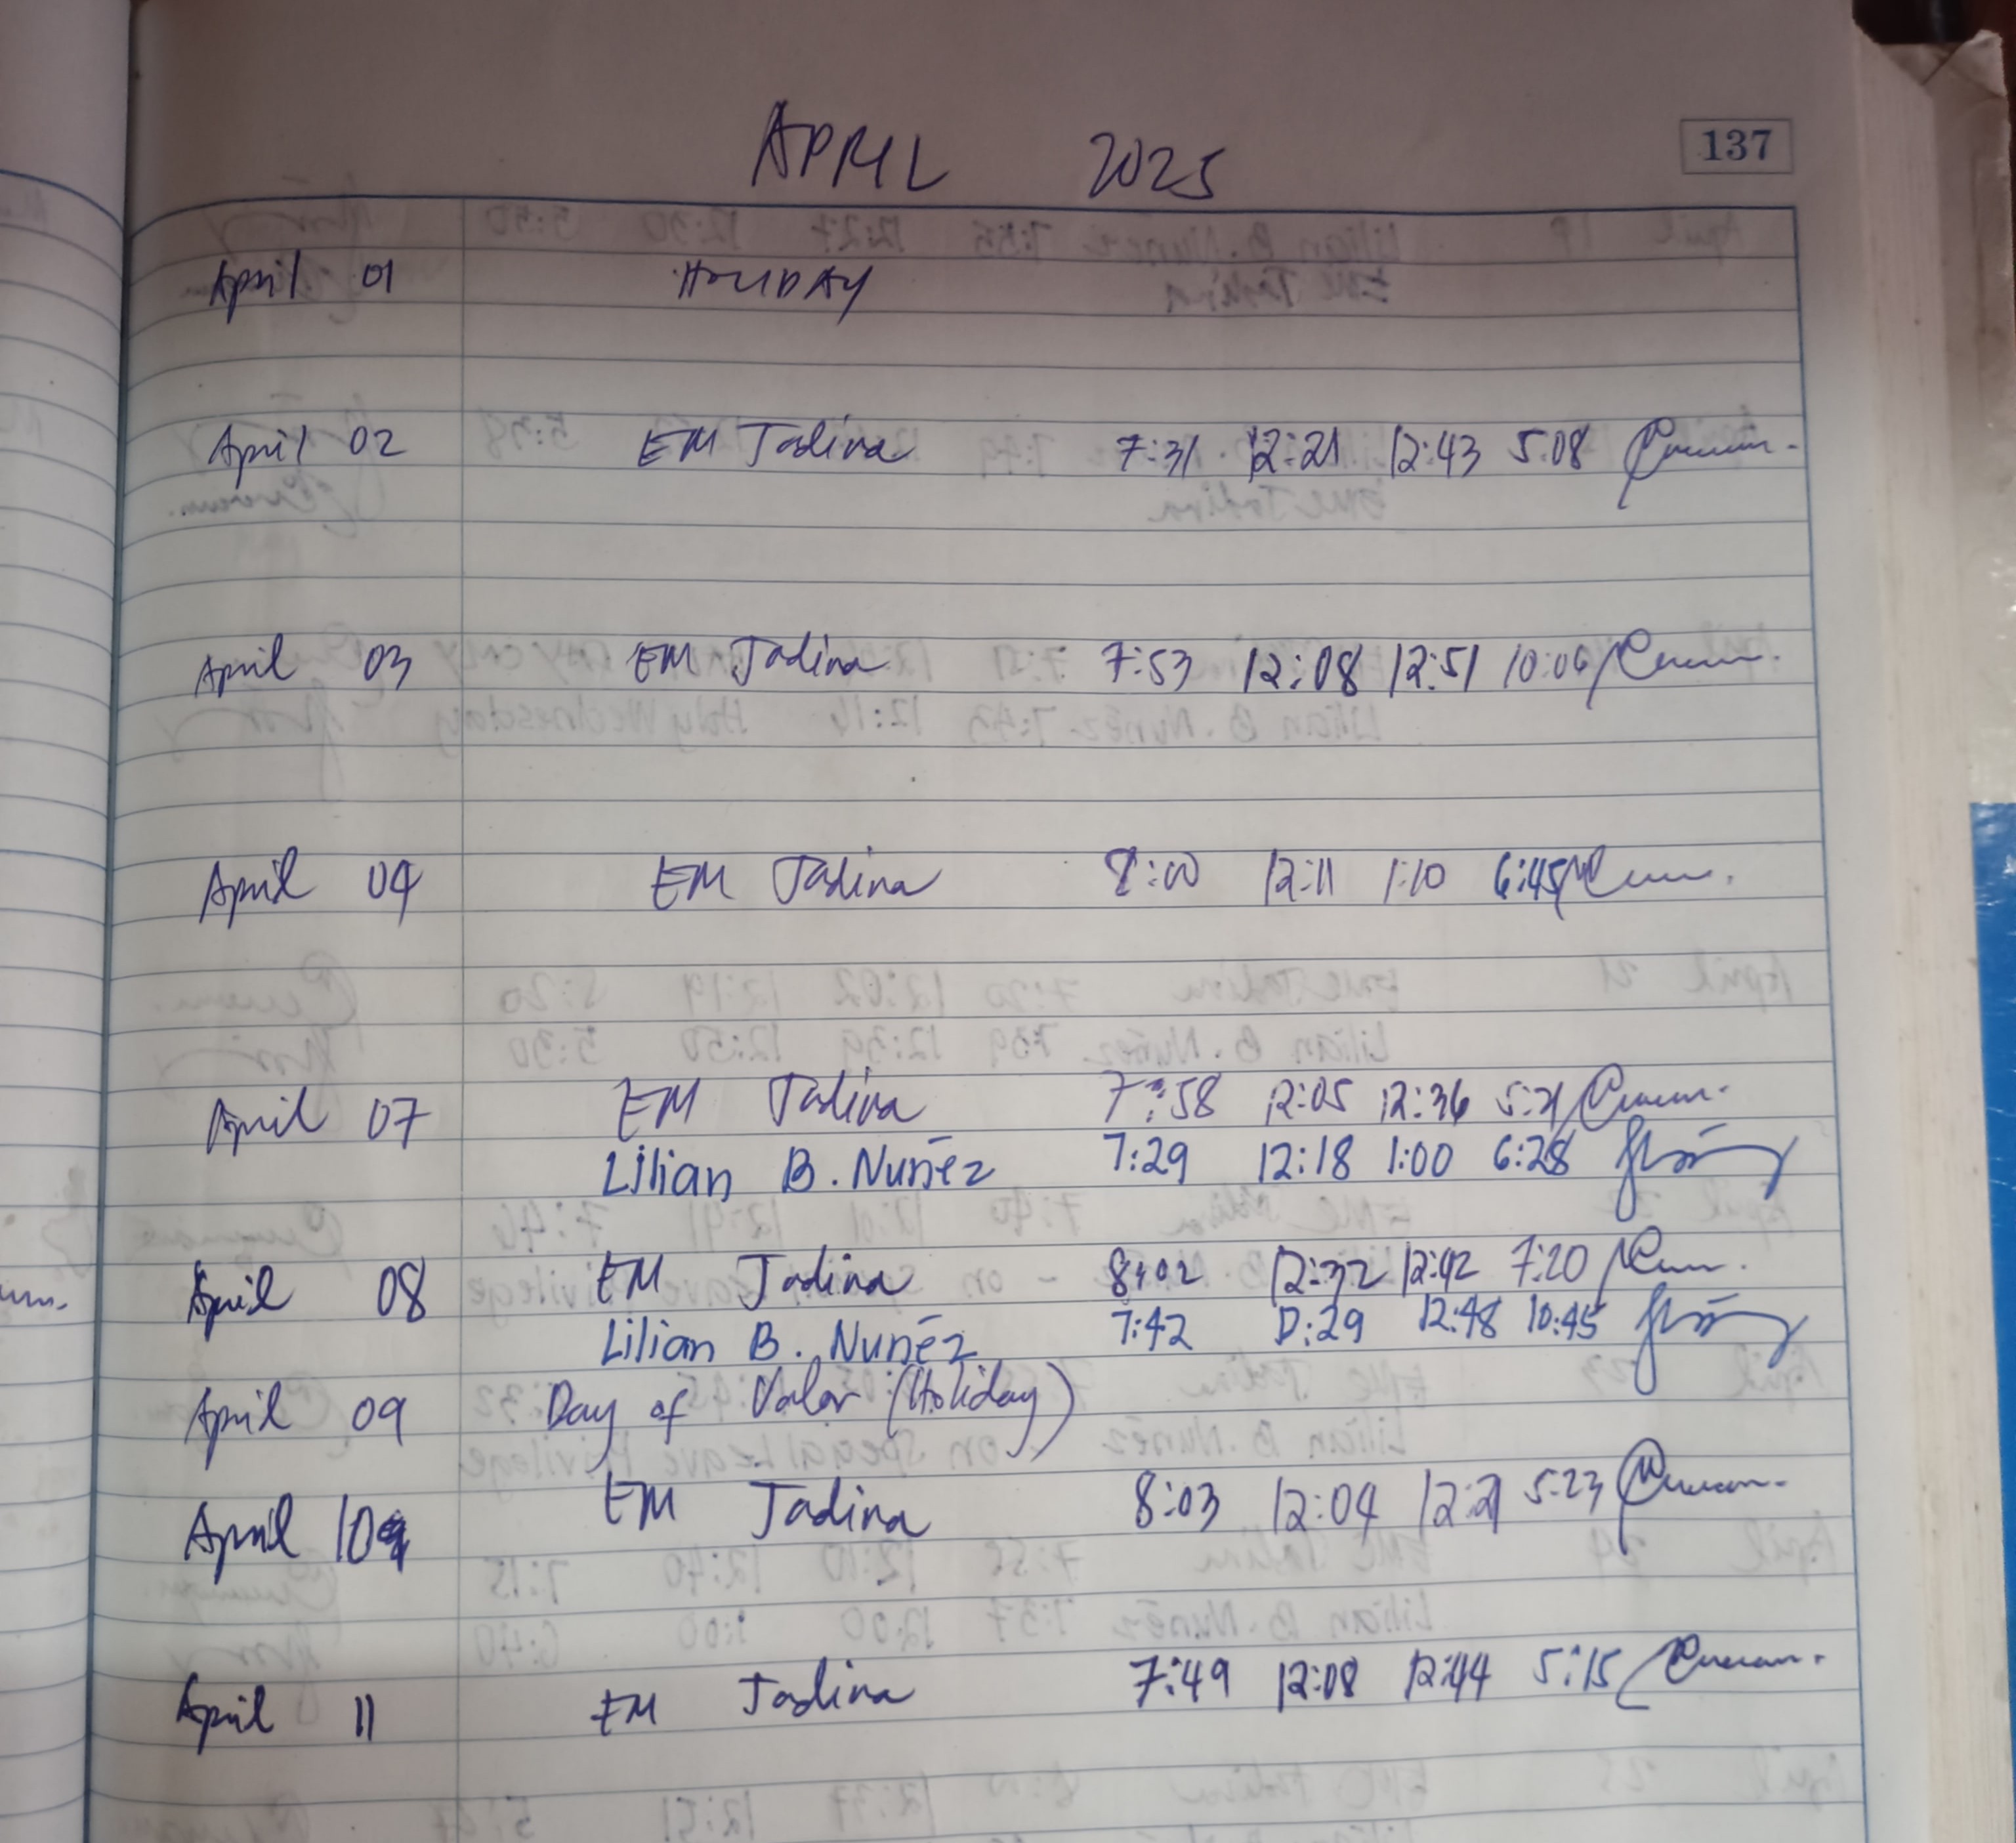 APRIL 2025
137
April 01 HOLIDAY
April 02 EM Jadina 7:31 12:21 12:43 5:08
April 03 EM Jadina 7:53 12:08 12:51 10:06
April 04 EM Jadina 8:00 12:11 1:10 6:45
April 07 EM Jadina 7:58 12:05 12:36 5:21
Lilian B. Nuñez 7:29 12:18 1:00 6:28
April 08 EM Jadina 8:02 12:32 12:42 7:20
Lilian B. Nuñez 7:42 12:29 12:48 10:45
April 09 Day of Valor (Holiday)
April 10 EM Jadina 8:03 12:04 12:21 5:23
April 11 EM Jadina 7:49 12:08 12:44 5:15